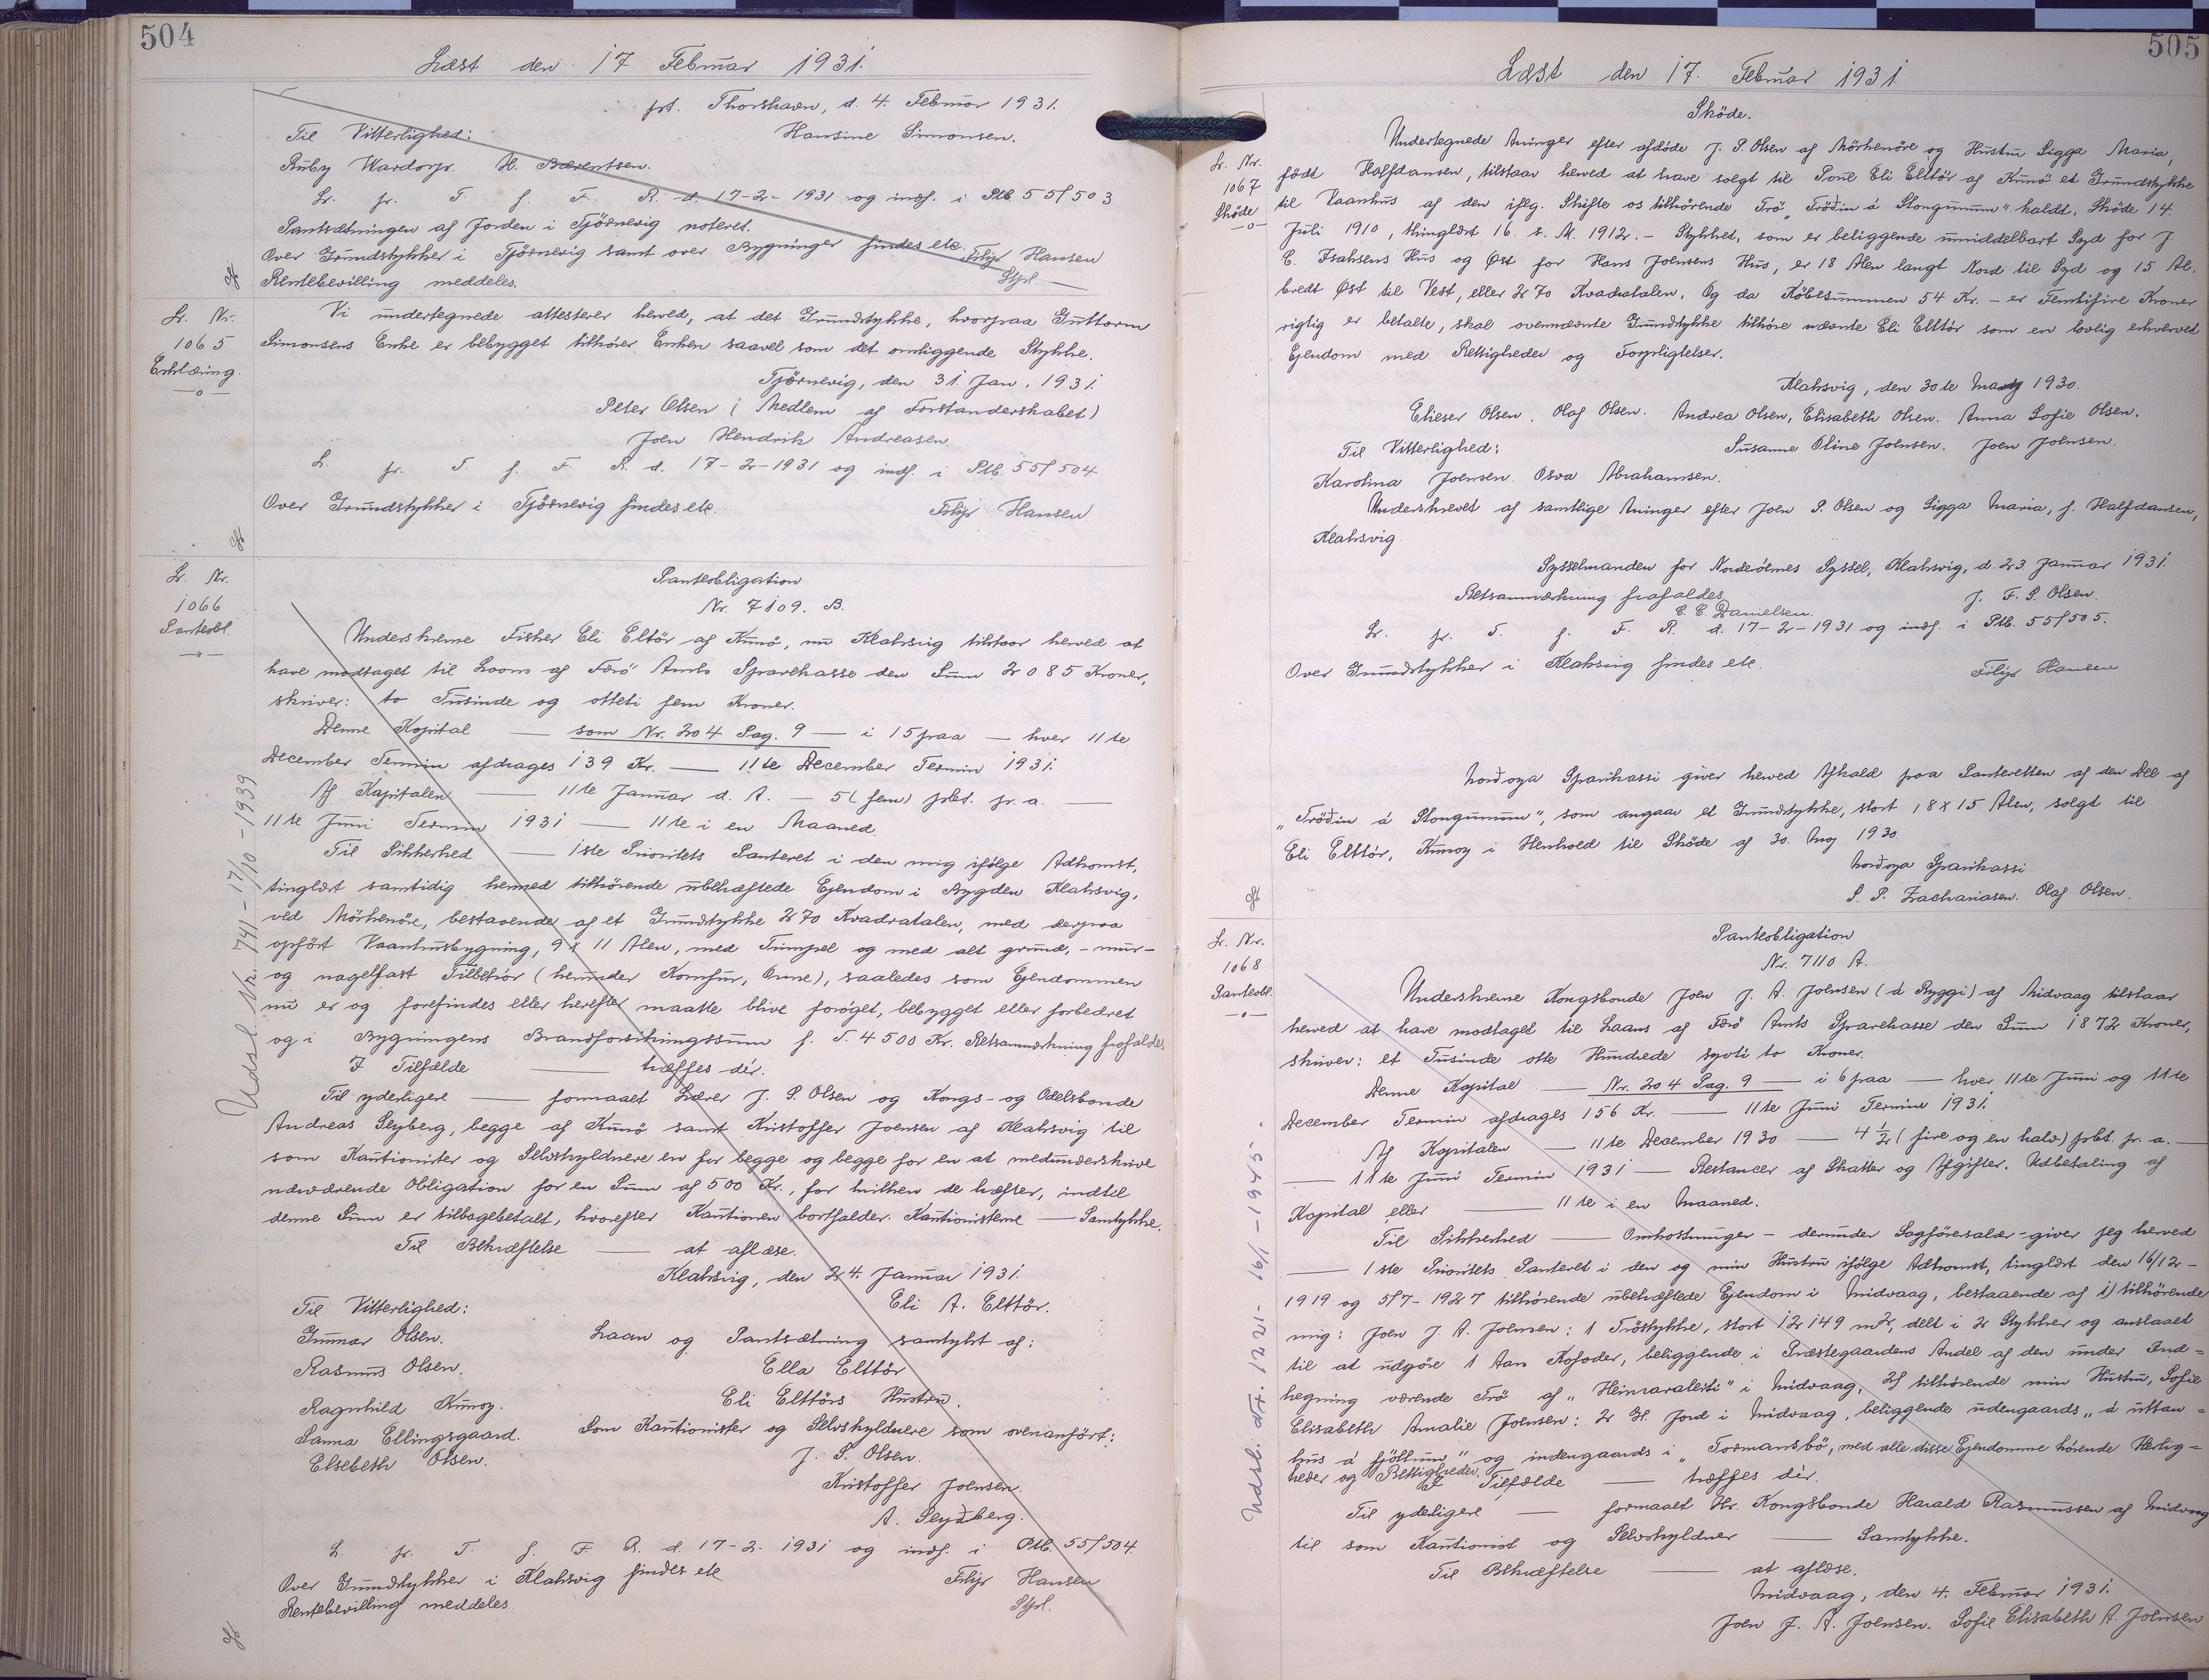 504
Læst den 17 Februar 1931.
prt. Thorshavn, d. 4. Februar 1931.
Til Vitterlighed: Hansine Simonsen.
Ruby Wardorp. H. Bærentsen.
L. pr. T. f. F. R. d. 17-2-1931 og indf. i Ptb. 55/503
Pantsætningen af Jorden i Tjörnevig noteret.
Over Grundstykker i Tjörnevig samt over Bygninger findes etc. Filip Hansen
Rentebevilling meddeles. Stpl.
L. Nr.
1065
Erklæring.
Vi undertegnede attesterer herved, at det Grundstykke, hvorpaa Guttorm
Simonsens Enke er bebygget tilhører Enken saavel som det omliggende Stykke.
Tjörnevig, den 31. Jan. 1931.
Peter Olsen (Medlem af Forstanderskabet)
Joen Hendrik Andreasen.
L. pr. T. f. F. R. d. 17-2-1931 og indf. i Ptb. 55/504
Over Grundstykker i Tjörnevig findes etc. Filip Hansen
L. Nr.
1066
Panteobl.
Panteobligation
Nr. 7109. B.
Underskrevne Fisker Eli Eltör af Kunö, nu Klaksvig tilstaar herved at
have modtaget til Laans af Færö Amts Sparekasse den Sum 2085 Kroner,
skriver: to Tusinde og otteti fem Kroner.
Denne Kapital — som Nr. 204 Pag. 9 — i 15 paa — hver 11te
December Termin afdrages 139 Kr. — 11te December Termin 1931.
Af Kapitalen — 11te Januar d. A. — 5 (fem) pCt. pr. a. —
11te Juni Termin 1931 — 11te i en Maaned.
Til Sikkerhed — 1ste Prioritets Panteret i den mig ifölge Adkomst,
tinglæst samtidig hermed tilhörende ubehæftede Ejendom i Bygden Klaksvig,
ved Mörkenöre, bestaaende af et Grundstykke 270 Kvadratalen, med derpaa
opfört Vaanhusbygning, 9 x 11 Alen, med Trimpel og med alt grund,- mur-
og nagelfast Tilbehör (herunder Komfur, Ovne), saaledes som Ejendommen
nu er og forefindes eller herefter maatte blive foröget, bebygget eller forbedret
og i Bygningens Brandforsikringssum f. T. 4500 Kr. Retsanmærkning frafaldes
I Tilfælde — træffes dér.
Til yderligere — formaaet Lærer J. P. Olsen og Kongs- og Odelsbonde
Andreas Seyberg, begge af Kunö samt Kristoffer Joensen af Klaksvig til
som Kautionister og Selvskyldnere en for begge og begge for en at medunderskrive
nærværende Obligation for en Sum af 500 Kr., for hvilken de hæfter, indtil
denne Sum er tilbagebetalt, hvorefter Kautionen bortfalder. Kautionisterne — Samtykke.
Til Bekræftelse — at aflæse.
Klaksvig, den 24. Januar 1931.
Til Vitterlighed: Eli A. Elttör.
Gunnar Olsen. Laan og Pantsætning samtykt af:
Rasmus Olsen. Ella Elttör
Ragnhild Kunoy. Eli Elttörs Hustru.
Sanna Ellingsgaard. Som Kautionister og Selvskyldnere som ovenanfört:
Elsebeth Olsen. J. P. Olsen.
Kristoffer Joensen.
A. Seyðberg.
L. pr. T. f. F. R. d. 17-2-1931 og indf. i Ptb. 55/504.
Over Grundstykker i Klaksvig findes etc Filip Hansen
Rentebevilling meddeles. Stpl.
Udsl. Nr. 741 - 17/10 - 1939
505
Læst den 17. Februar 1931
L. Nr.
1067
Sköde
Sköde.
Undertegnede Arvinger efter afdöde J. P. Olsen af Mörkenöre og Hustru Sigga Maria,
födt Halfdansen, tilstaar herved at have solgt til Poul Eli Elttör af Kunö et Grundstykke
til Vaanhus af den iflg. Skifte os tilhörende Trö „Tröðin á Stongunum" kaldt. Sköde 14.
Juli 1910, thinglæst 16. s. M. 1912. - Stykket, som er beliggende umiddelbart Syd for J.
C. Isaksens Hus og Øst for Hans Joensens Hus, er 18 Alen langt Nord til Syd og 15 Al.
bredt Øst til Vest, eller 270 Kvadratalen. Og da Köbesummen 54 Kr. - er Femtifire Kroner
rigtig er betalte, skal ovennævnte Grundstykke tilhöre nævnte Eli Elttör som en lovlig erhvervet
Ejendom med Rettigheder og Forpligtelser.
Klaksvig, den 30te Maj 1930.
Elieser Olsen. Olaf Olsen. Andrea Olsen, Elisabeth Olsen. Anna Sofie Olsen.
Til Vitterlighed: Susanne Oline Joensen. Joen Joensen.
Karolina Joensen. Osva Abrahamsen.
Underskrevet af samtlige Arvinger efter Joen P. Olsen og Sigga Maria, f. Halfdansen,
Klaksvig.
Sysselmanden for Norderöernes Syssel, Klaksvig, d. 23 Januar 1931.
Retsanmærkning frafaldes J. F. P. Olsen.
E. E. Danielsen.
L. pr. T. f. F. R. d. 17-2-1931 og indf. i Ptb. 55/505.
Over Grundstykker i Klaksvig findes etc. Filip Hansen
Norðoya Sparikassi giver herved Afkald paa Panteretten af den Del af
„Tröðin á Stongunum", som angaar et Grundstykke, stort 18 x 15 Alen, solgt til
Eli Elttör, Kunoy i Henhold til Sköde af 30. Maj 1930.
Norðoya Sparikassi
S. P. Zachariasen. Olaf Olsen.
L. Nr.
1068
Panteobl.
Panteobligation
Nr. 7110 A.
Underskrevne Kongsbonde Joen J. A. Joensen (á Ryggi) af Midvaag tilstaar
herved at have modtaget til Laans af Færö Amts Sparekasse den Sum 1872 Kroner,
skriver: et Tusinde otte Hundrede syvti to Kroner.
Denne Kapital — Nr. 204 Pag. 9 — i 6 paa — hver 11te Juni og 11te
December Termin afdrages 156 Kr. — 11te Juni Termin 1931.
Af Kapitalen — 11te December 1930 — 4 1/2 (fire og en halv) pCt. pr. a. —
— 11te Juni Termin 1931 — Restancer af Skatter og Afgifter. Udbetaling af
Kapital eller — 11te i en Maaned.
Til Sikkerhed — Omkostninger - derunder Sagförersalær - giver jeg herved
— 1ste Prioritets Panteret i den og min Hustru ifölge Adkomst, tinglæst den 16/12-
1919 og 5/7-1927 tilhörende ubehæftede Ejendom i Midvaag, bestaaende af 1) tilhörende
mig: Joen J. A. Joensen: 1 Tröstykke, stort 12149 m2, delt i 2 Stykker og anslaaet
til at udgöre 1 Aars Kofoder, beliggende i Præstegaardens Andel af den under Ind=
hegning værende Trö af „Heimaraleiti" i Midvaag, 2) tilhörende min Hustru, Sofie
Elisabeth Amalie Joensen: 2 Gl. Jord i Midvaag, beliggende udengaards „á uttan=
hus á fjöllum" og indengaards i „Tormansbö, med alle disse Ejendomme hörende Herlig=
heder og Rettigheder. I Tilfælde — træffes dér.
Til yderligere — formaaet Hr. Kongsbonde Harald Rasmussen af Midvaag
til som Kautionist og Selvskyldner — Samtykke.
Til Bekræftelse — at aflæse.
Midvaag, den 4. Februar 1931.
Joen J. A. Joensen. Sofie Elisabeth A. Joensen
Udsl. Nr. 1221 - 16/1 - 1945.